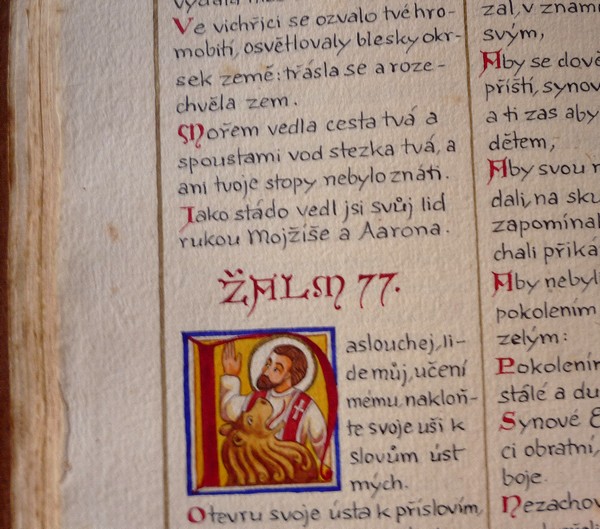 Ve vichřici se ozvalo tvé hro-
mobití, osvětlovaly blesky okr-
sek země: třásla se a roze-
chvěla zem.
Mořem vedla cesta tvá a
spoustami vod stezka tvá, a
ani tvoje stopy nebylo znáti.
Jako stádo vedl jsi svůj lid
rukou Mojžíše a Aarona.
ŽALM 77.
Naslouchej, li-
de můj, učení
mému, nakloň-
te svoje uši k
slovům úst
mých.
Otevru svoje ústa k příslovím,
zal, v
svým,
Aby se
příští,
a ti zas aby
dětem,
Aby svou
dali, na
chali
Aby
pokolením
zelým:
stálé a
Synové
ci obratní,
boje.